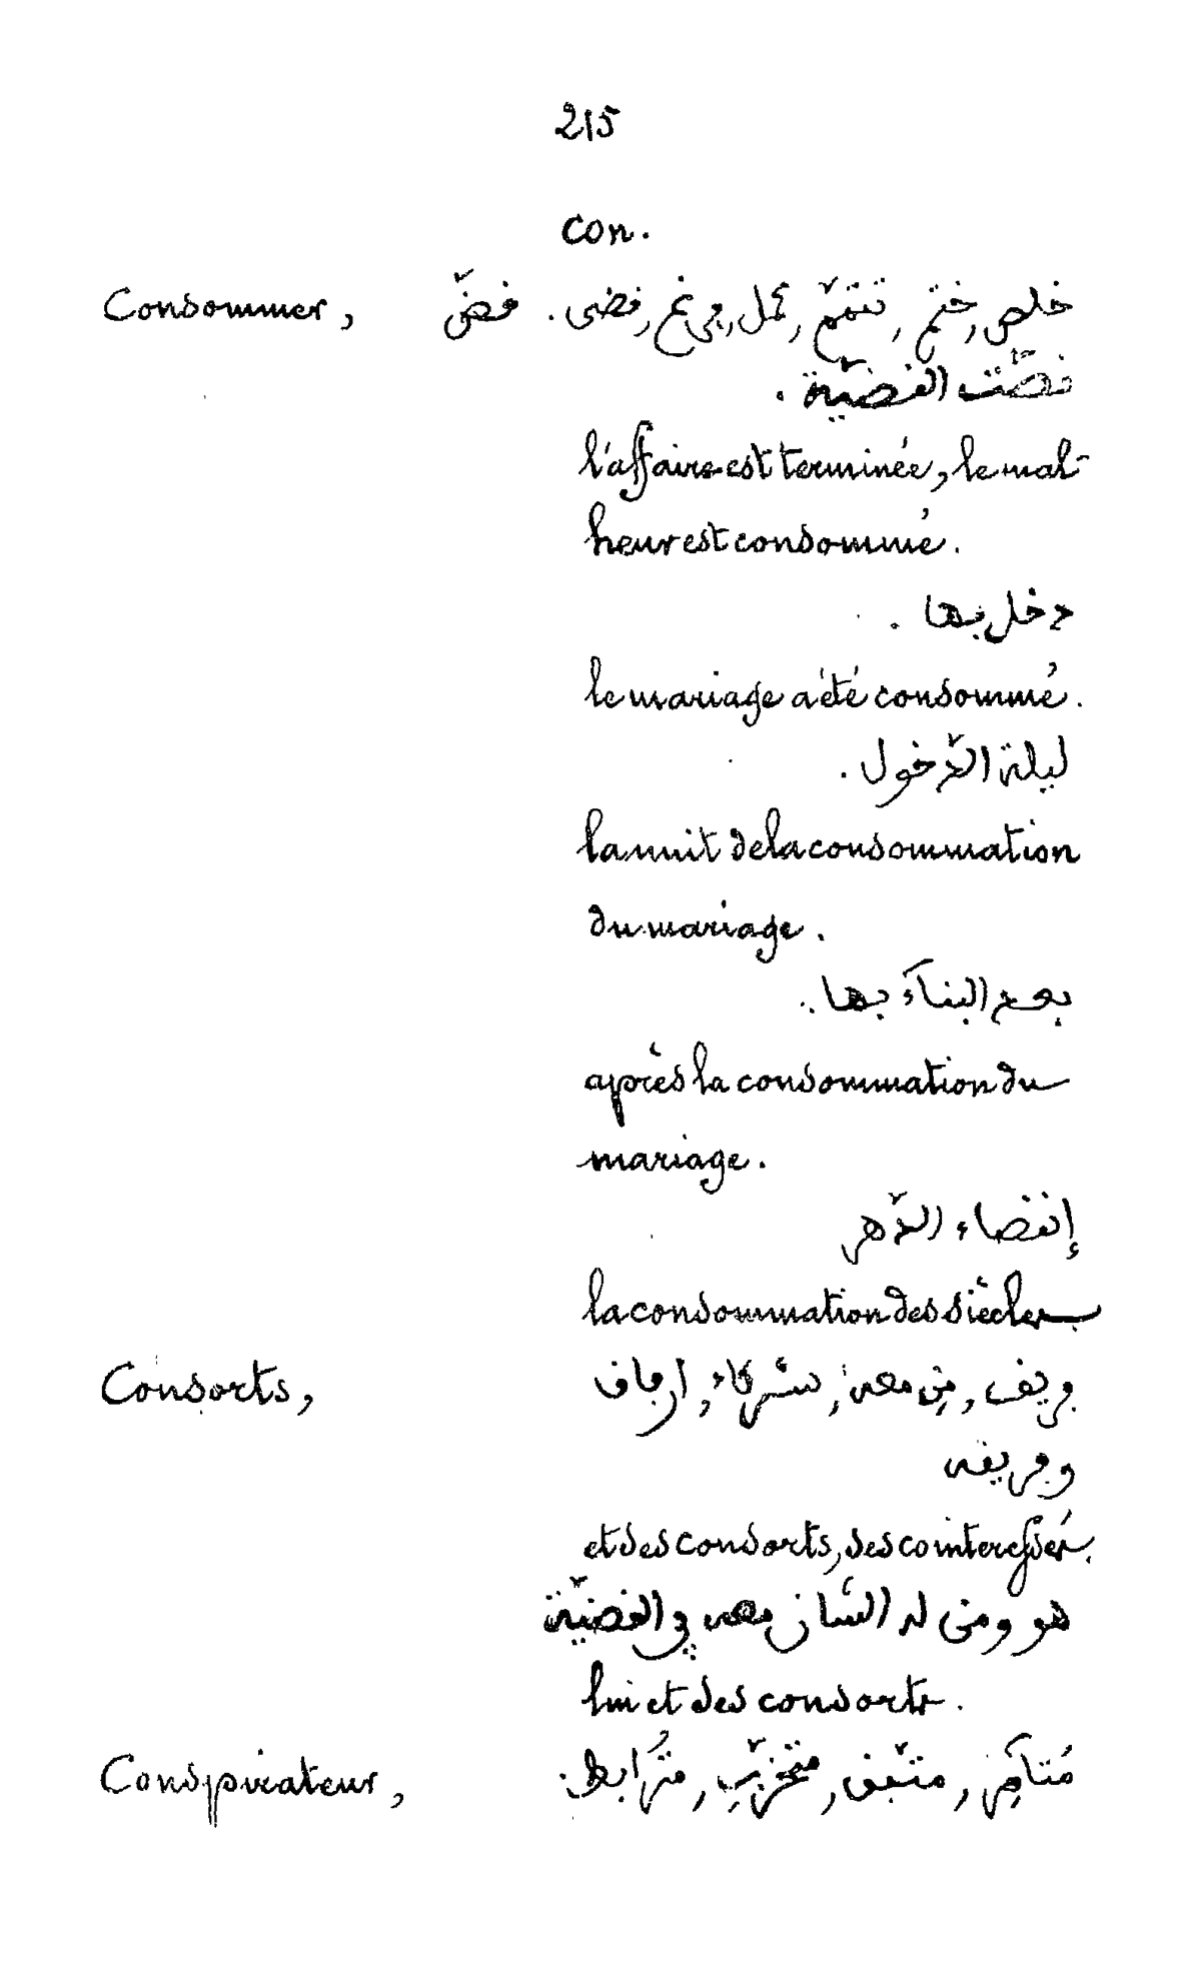 215
con.
Consommer, خلص, ختم, تتمّم, كمل, فرغ, قضى. قضّ
قضّت القضيّة.
l'affaire est terminée, le mal-
heur est consommé.
دخل بها.
le mariage a été consommé.
ليلة الدّخول.
la nuit de la consommation
du mariage.
بعد البنآء بها.
après la consommation du
mariage.
إنقضاء الدّهر
la consommation des siècles
Consorts, فريق, مَن معه, شركاء, ارفاق
وفريقه
et des consorts, des cointeressés.
هو ومن له الشان معه في القضيّة
lui et des consorts.
Conspirateur, مُتآمِر, متّفق, متحزّبِ, مترَابط.